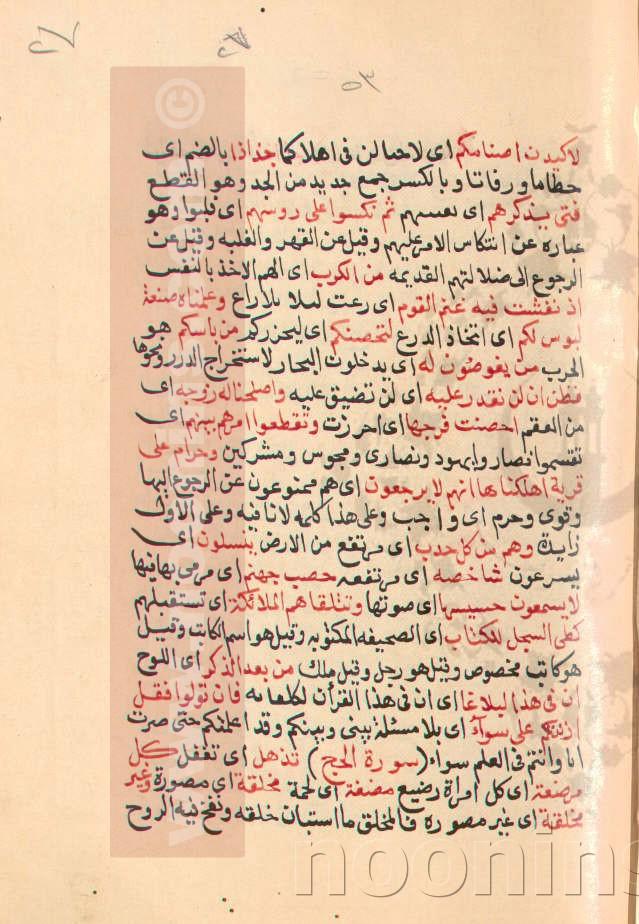 ٥٣
لاكيدن اصنامكم اى لاحتالن فى اهلاكها جذاذا بالضم اى
حطاما ورفاتا وبالكسر جمع جديد من الجد وهو القطع
فتى يذكرهم اى يعيبهم ثم نكسوا على روسهم اى قلبوا وهو
عباره عن انتكاس الامر عليهم وقيل عن القهر والغلبه وقيل عن
الرجوع الى ضلالتهم القديمه من الكرب اى الهم الاخذ بالنفس
اذ نفشت فيه غنم القوم اى رعت ليلا بلا راع وعلمناه صنعة
لبوس لكم اى اتخاذ الدرع لتحصنكم اى ليحرزكم من باسكم هو
الحرب من يغوصون له اى يدخلون البحار لاستخراج الدرر ونحوها
فظن ان لن نقدر عليه اى لن تضيق عليه واصلحنا له زوجه اى
من العقم احصنت فرجها اى احرزت وتقطعوا امرهم بينهم اى
تقتسموا نصاروا يهود ونصارى ومجوس ومشركين وحرام على
قرية اهلكناها انهم لا يرجعون اى هم ممنوعون عن الرجوع اليها
وقوى وحرم اى واجب وعلى هذا كلمه لا نافيه وعلى الاول
زايدة وهم من كل حدب اى مرتفع من الارض ينسلون اى
يسرعون شاخصه اى مرتفعه حصب جهنم اى مرمى بها فيها
لا يسمعون حسيسها اى صوتها وتتلقاهم الملائكة اى تستقبلهم
كطى السجل للكتاب اى الصحيفه المكتوبه وقيل هو اسم الكاتب وقيل
هو كاتب مخصوص وقيل هو رجل وقيل ملك من بعد الذكر اى اللوح
ان فى هذا لبلاغا اى ان فى هذا القرآن لكفايه فان تولوا فقل
اذنتكم على سواء اى بلا مسئلة بينى وبينكم وقد اعلمتكم حتى صرت
انا وانتم فى العلم سواء (سورة الحج) تذهل اى تغفل كل
مرضعة اى كل امراة رضيع مضغة اى لحمة مخلقة اى مصورة وغير
مخلقة اى غير مصوره فالمخلق ما استبان خلقه ونفخ فيه الروح